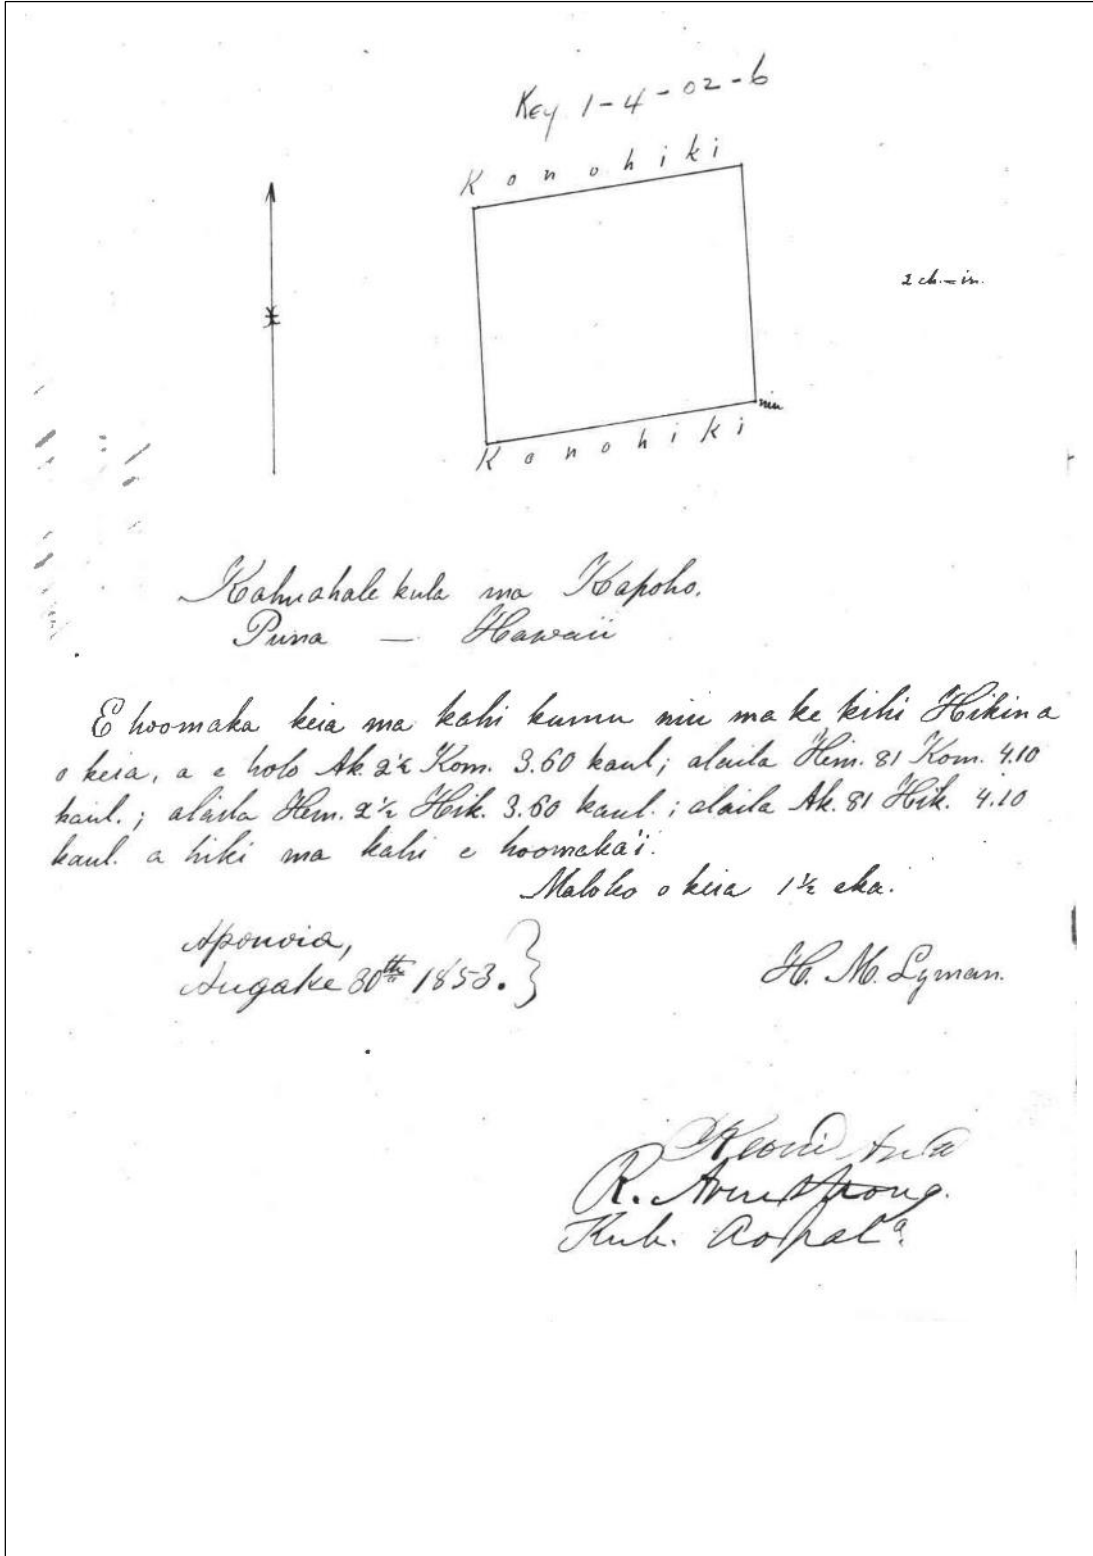 Key 1-4-02-6
Konohiki
2 ch. = in.
niu
Konohiki
Kahuahale kula ma Kapoho.
Puna — Hawaii
E hoomaka keia ma kahi kumu niu ma ke kihi Hikina
o keia, a e holo Ak. 2½ Kom. 3.60 kaul; alaila Hem. 81 Kom. 4.10
kaul.; alaila Hem. 2½ Hik. 3.60 kaul.; alaila Ak. 81 Hik. 4.10
kaul. a hiki ma kahi e hoomaka'i.
Maloko o keia 1½ eka.
Aponoia,
Augake 30th 1853.
H. M. Lyman.
Keoni Ana
R. Armstrong.
Kub. Aopala.